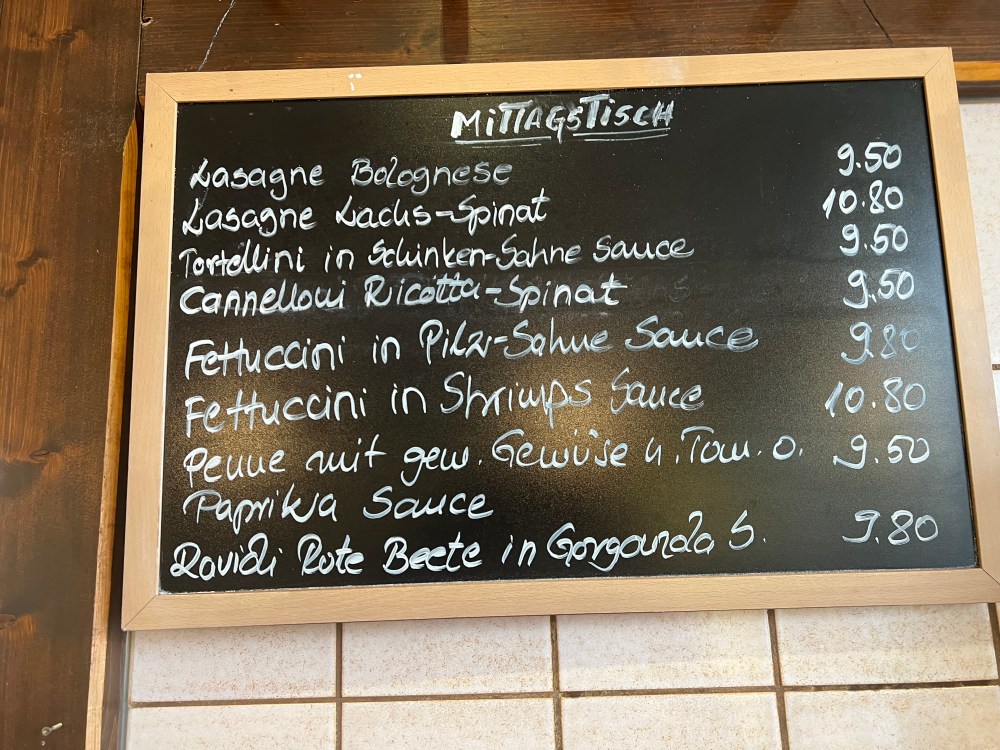 MITTAGSTISCH
Lasagne Bolognese 9.50
Lasagne Lachs-Spinat 10.80
Tortellini in Schinken-Sahne Sauce 9.50
Cannelloni Ricotta-Spinat 9.50
Fettuccini in Pilz-Sahne Sauce 9.80
Fettuccini in Shrimps Sauce 10.80
Penne mit gew. Gemüse u. Tom. o. 9.50
Paprika Sauce
Ravioli Rote Beete in Gorgonzola S. 9.80